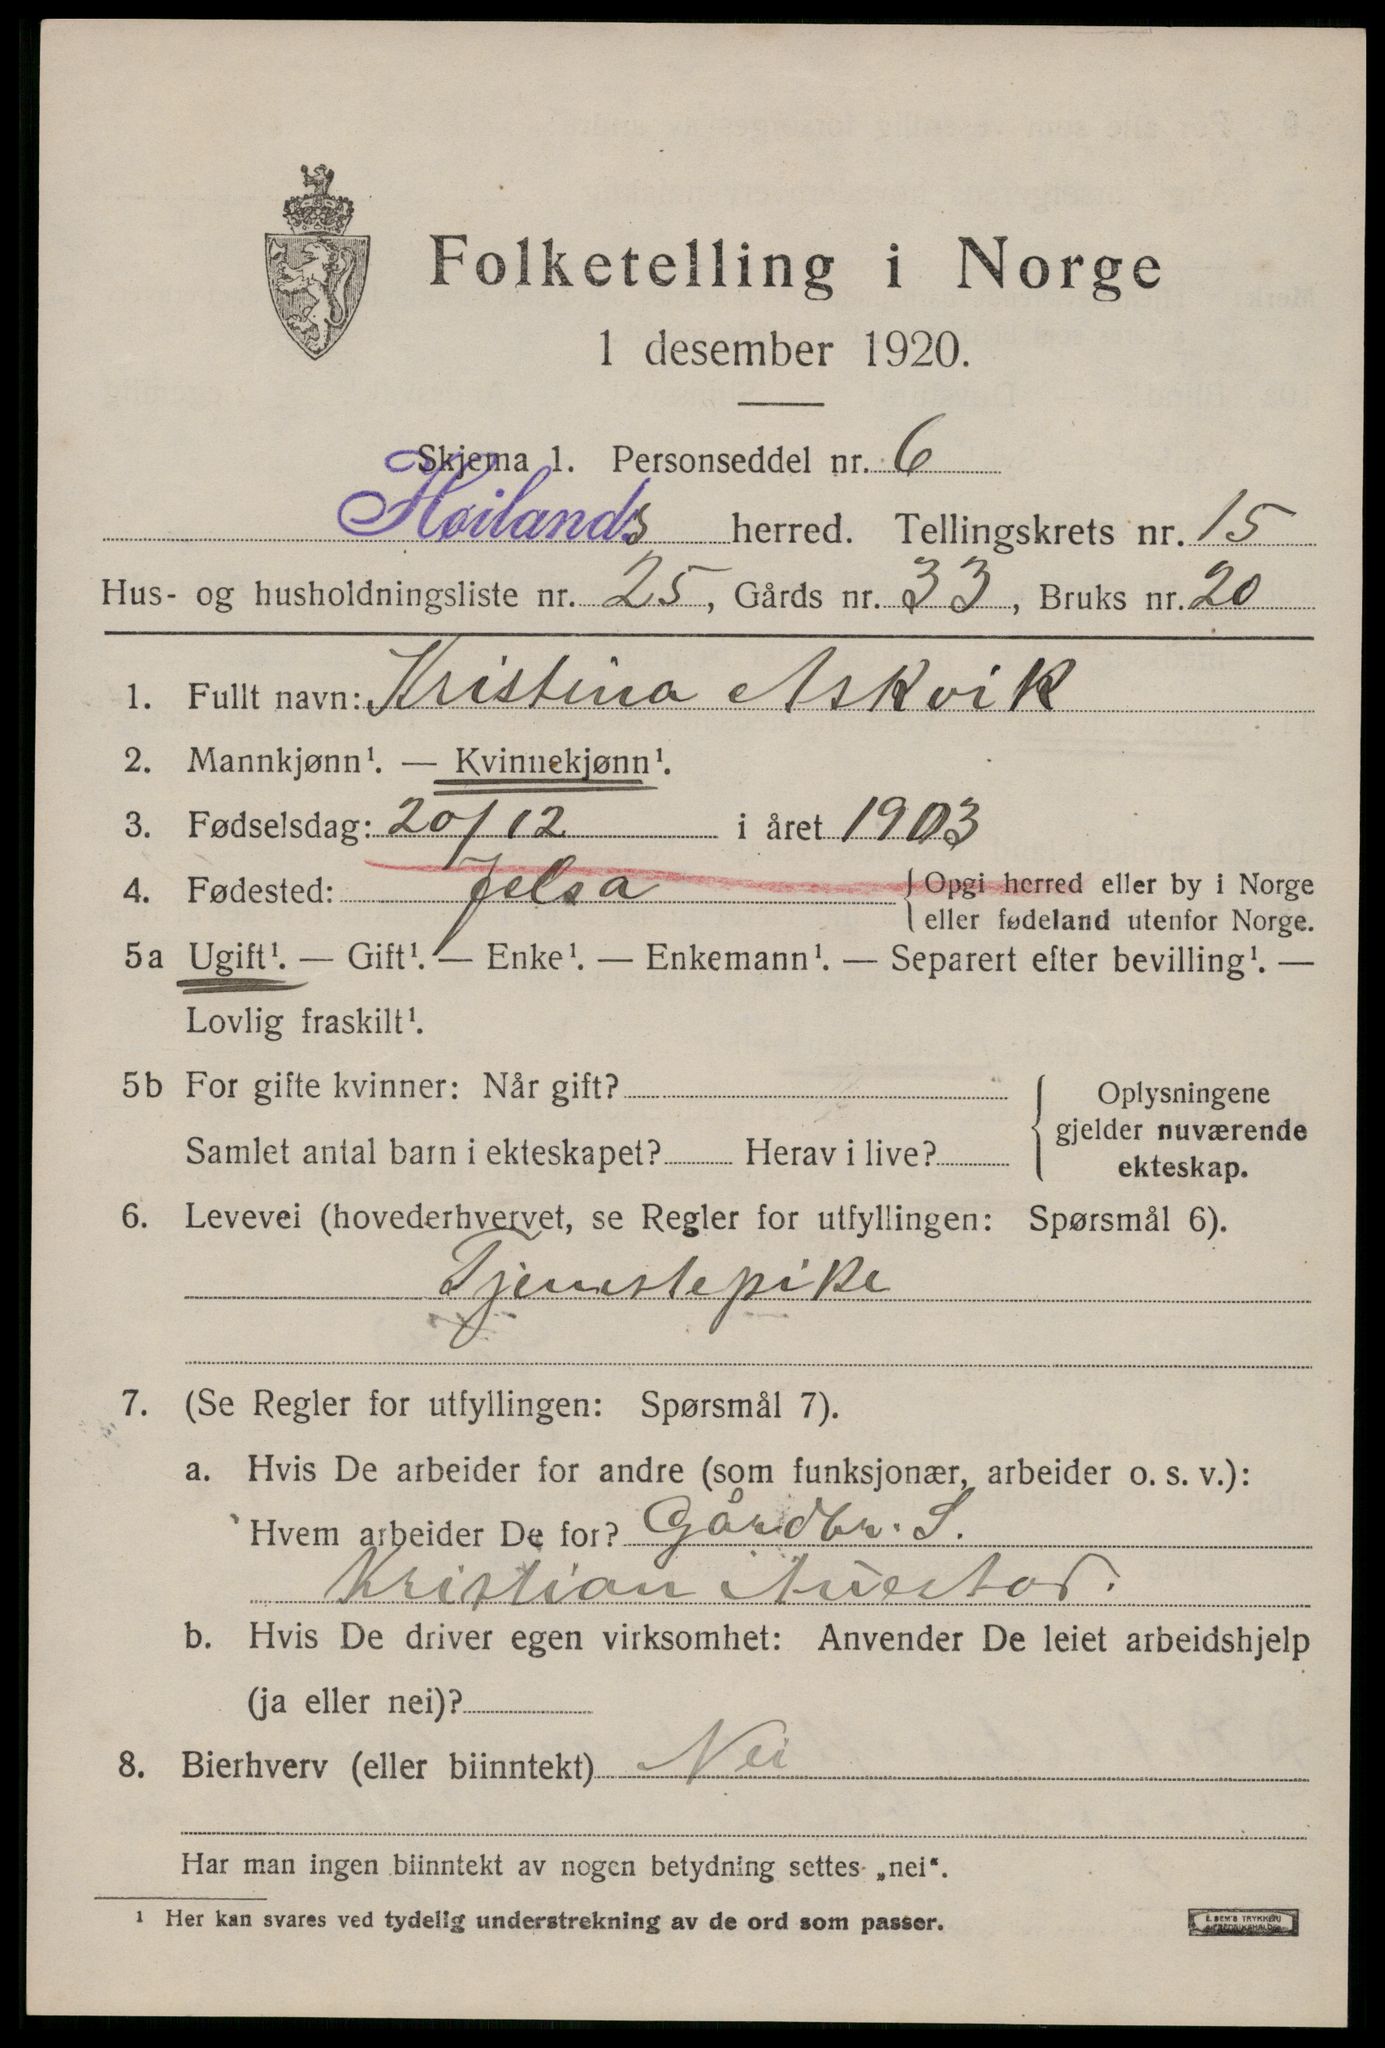 Folketelling i Norge
1 desember 1920.
Skjema 1. Personseddel nr. 6
Høilands herred. Tellingskrets nr. 15
Hus- og husholdningsliste nr. 25, Gårds nr. 33, Bruks nr. 20
1. Fullt navn: Kristina Askvik
2. Mannkjønn¹. — Kvinnekjønn¹.
3. Fødselsdag: 20/12 i året 1903
4. Fødested: Jelsa {Opgi herred eller by i Norge
eller fødeland utenfor Norge.
5a Ugift¹. — Gift¹. — Enke¹. — Enkemann¹. — Separert efter bevilling¹. —
Lovlig fraskilt¹.
5b For gifte kvinner: Når gift?
Samlet antal barn i ekteskapet? Herav i live?
Oplysningene
gjelder nuværende
ekteskap.
6. Levevei (hovederhvervet, se Regler for utfyllingen: Spørsmål 6).
Tjenestepike
7. (Se Regler for utfyllingen: Spørsmål 7).
a. Hvis De arbeider for andre (som funksjonær, arbeider o. s. v.):
Hvem arbeider De for? Gårdbr. S.
Kristian Auestad.
b. Hvis De driver egen virksomhet: Anvender De leiet arbeidshjelp
(ja eller nei)?
8. Bierhverv (eller biinntekt) Nei
Har man ingen biinntekt av nogen betydning settes „nei“.
¹ Her kan svares ved tydelig understrekning av de ord som passer.
E. SEM'S TRYKKERI
FREDRIKSHALD